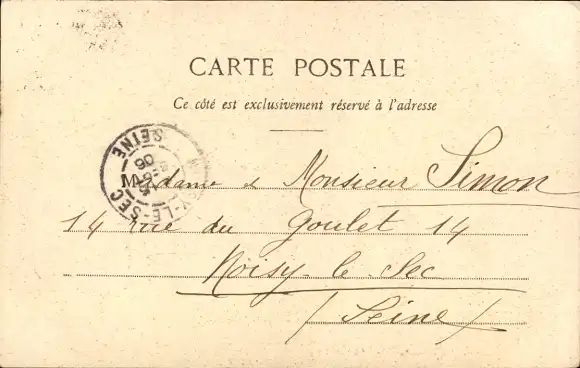 CARTE POSTALE
Ce côté est exclusivement réservé à l'adresse
Y-LE-SEC
SEINE
06
Madame & Monsieur Simon
14 rue du Goulet 14
Noisy le Sec
(Seine)